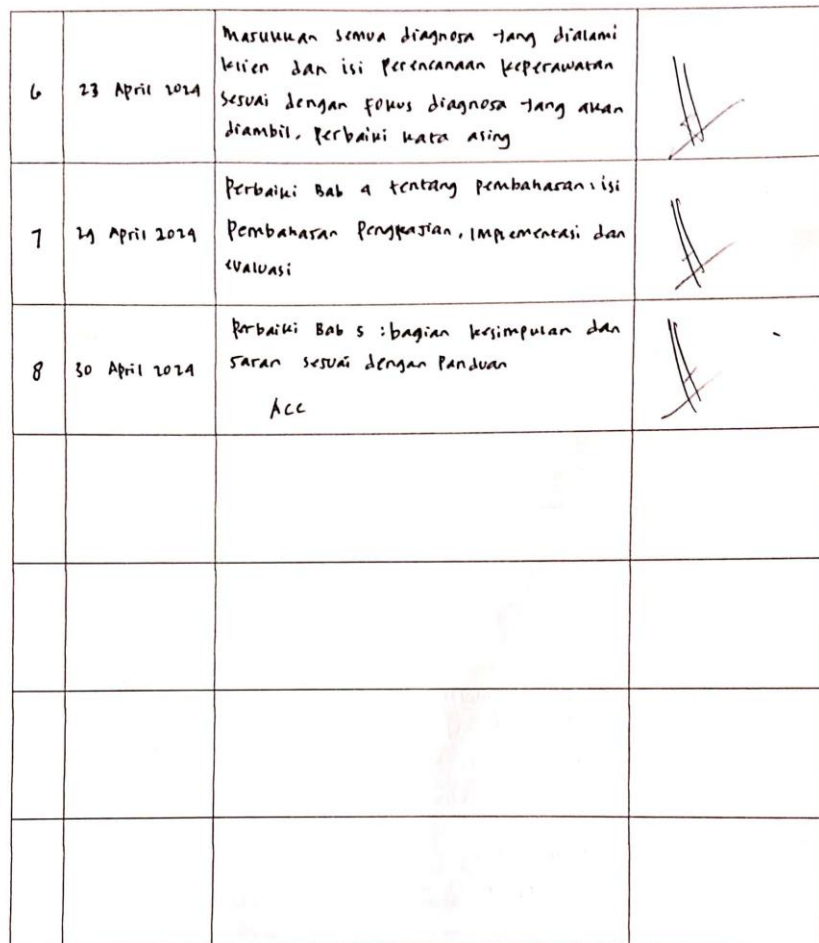 6
23 April 2024
Masukkan semua diagnosa yang dialami
klien dan isi Perencanaan keperawatan
Sesuai dengan fokus diagnosa yang akan
diambil. Perbaiki kata asing
7
29 April 2024
Perbaiki Bab 4 tentang pembahasan: isi
Pembahasan Pengkajian, Implementasi dan
evaluasi
8
30 April 2024
Perbaiki Bab 5 : bagian kesimpulan dan
saran sesuai dengan Panduan
Acc